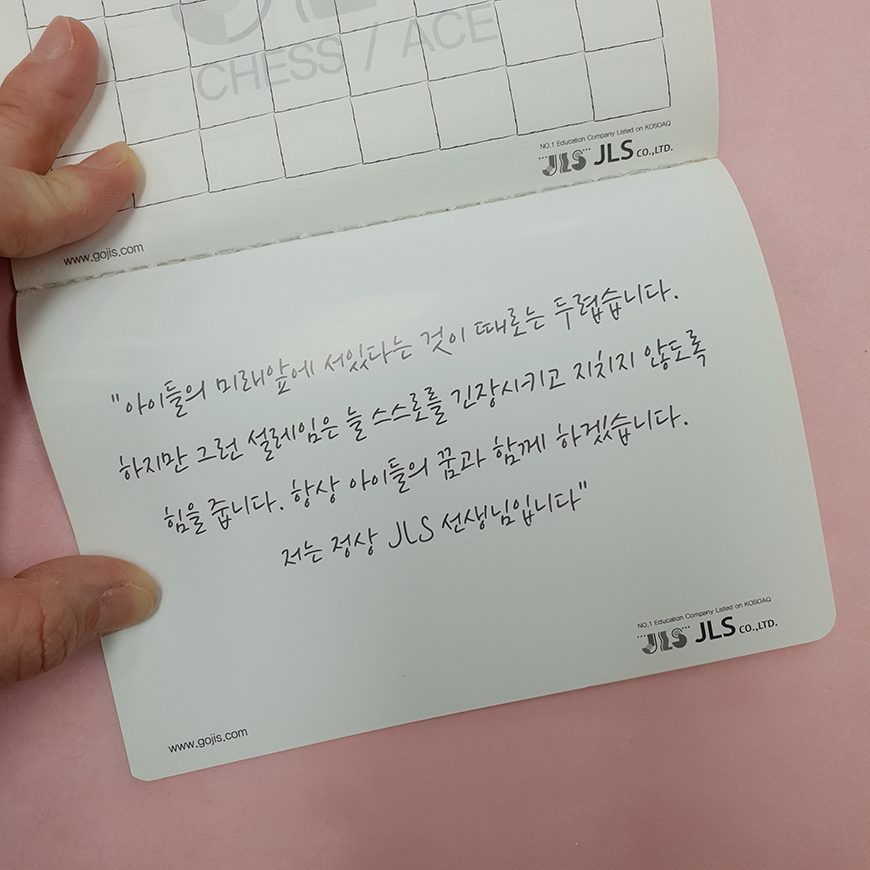 CHESS / ACE
NO.1 Education Company Listed on KOSDAQ
JLS JLS CO.,LTD.
www.gojls.com
"아이들의 미래앞에 서있다는 것이 때로는 두렵습니다.
하지만 그런 설레임은 늘 스스로를 긴장시키고 지치지 않도록
힘을 줍니다. 항상 아이들의 꿈과 함께 하겠습니다.
저는 정상 JLS 선생님입니다"
NO.1 Education Company Listed on KOSDAQ
JLS JLS CO.,LTD.
www.gojls.com